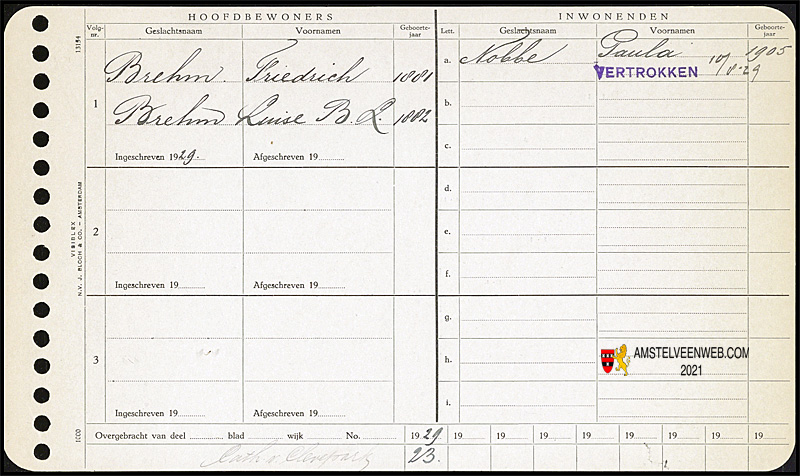 HOOFDBEWONERS
INWONENDEN
Volg-nr. Geslachtsnaam Voornamen Geboorte-jaar
Lett. Geslachtsnaam Voornamen Geboorte-jaar
13154
1
Brehm. Friedrich 1881
Brehm Luise B. L. 1882
Ingeschreven 1929. Afgeschreven 19
a. Nobbe Paula 1905
VERTROKKEN 10/8-29
b.
c.
2
Ingeschreven 19 Afgeschreven 19
d.
e.
f.
VISIBLEX
N.V. J. BLOCH & CO. - AMSTERDAM
3
Ingeschreven 19 Afgeschreven 19
g.
h.
i.
AMSTELVEENWEB.COM
2021
1000
Overgebracht van deel blad wijk No. 1929 19 19 19 19 19 19 19 19
23.